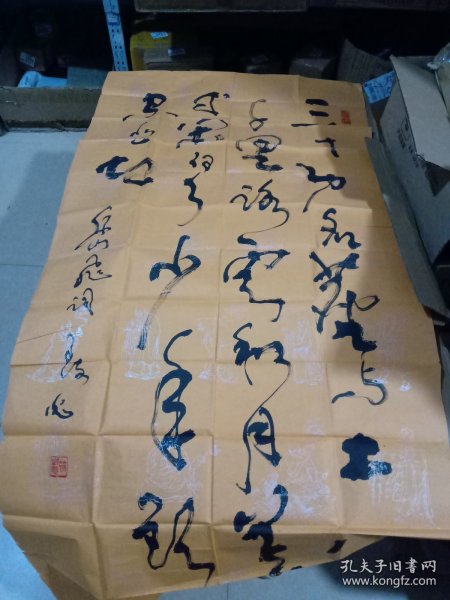 三十功名塵与土
千里路雲和月莫
等闲白了少年頭
空悲切
岳飛詞
孔夫子旧书网
www.kongfz.com